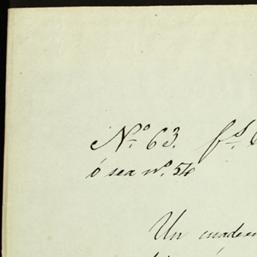 Nº 63. fs. 6
ó sea nº. 54
Un cuader